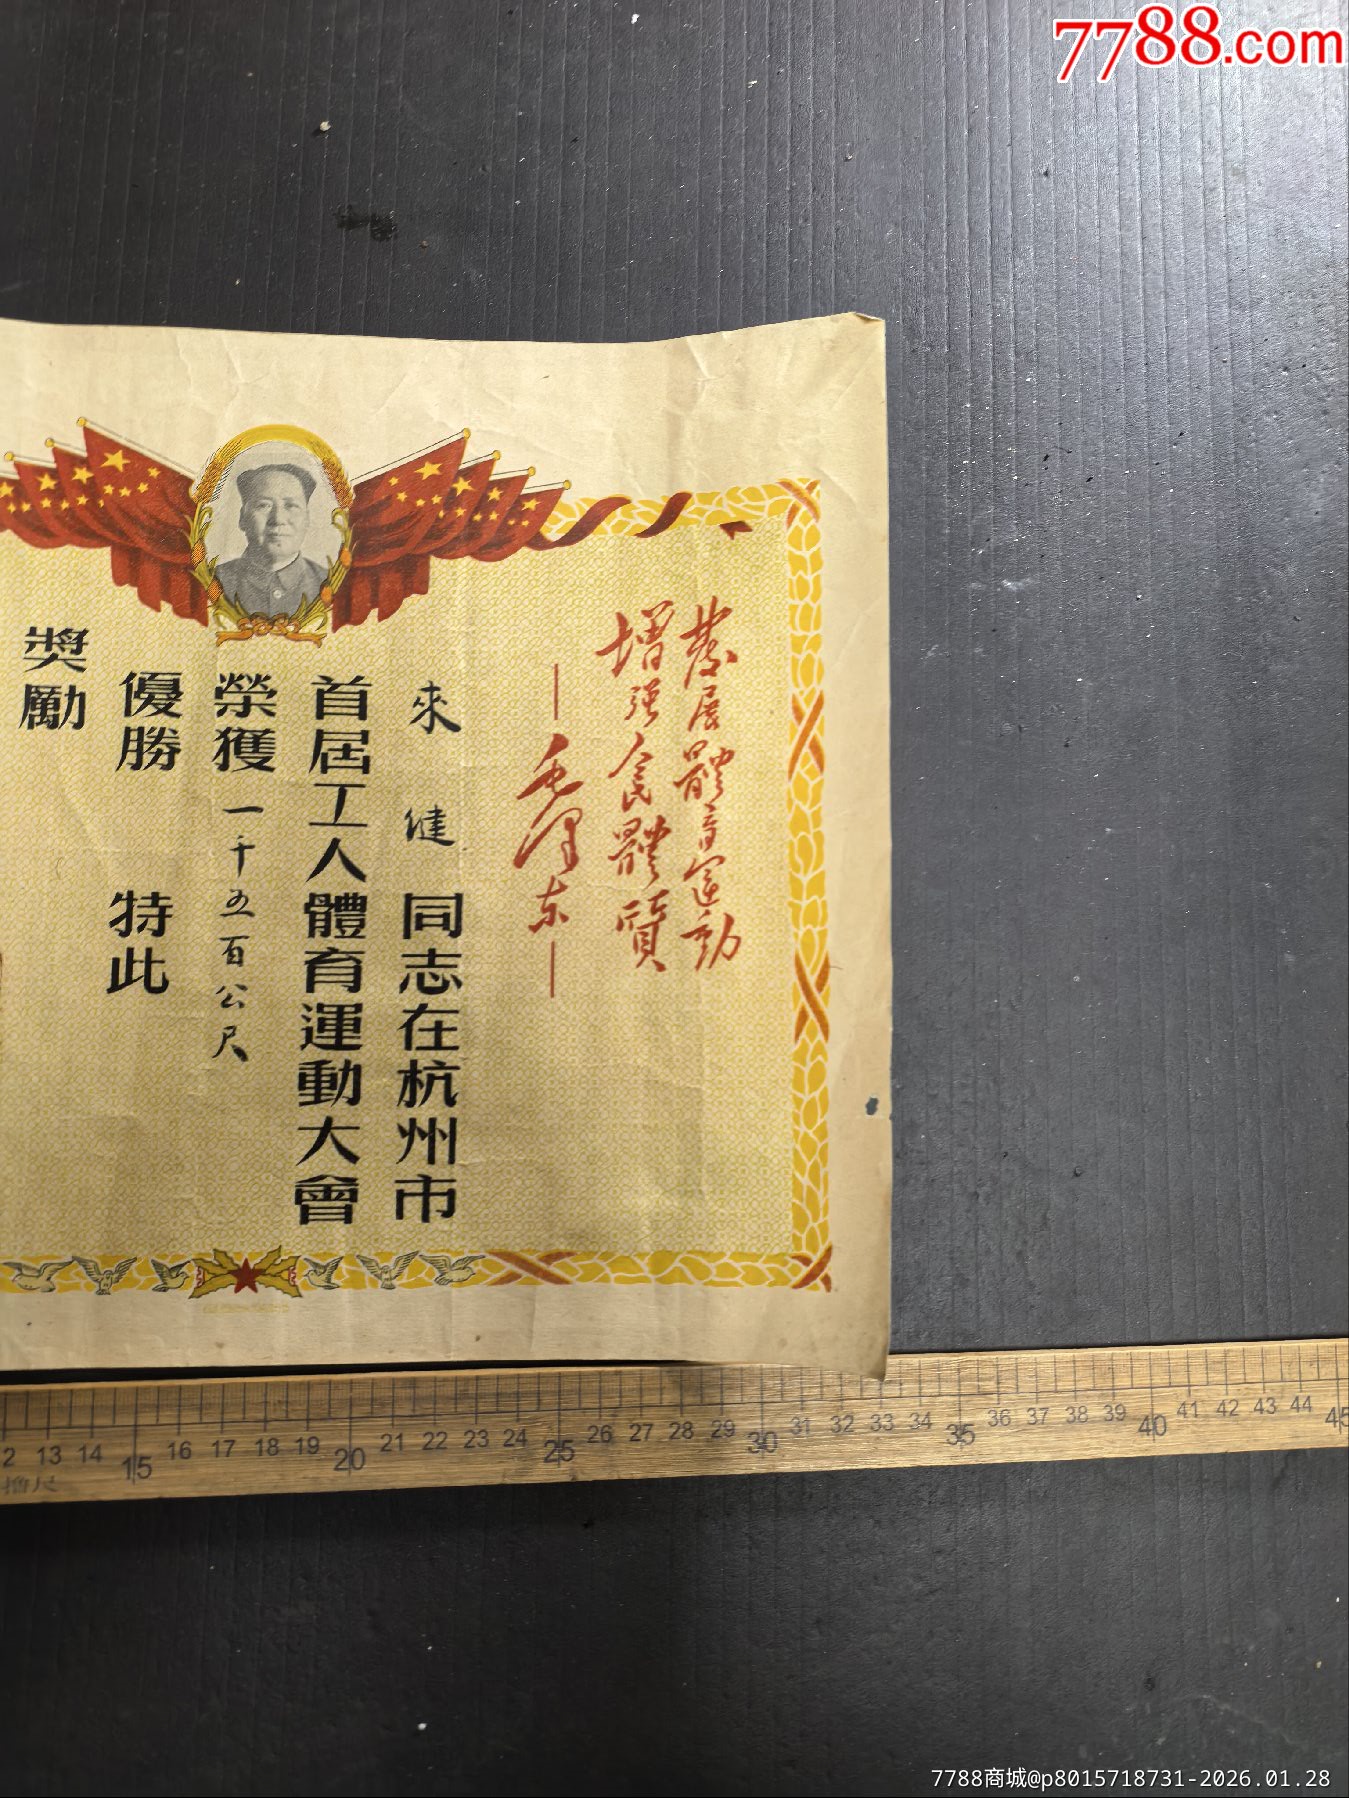 7788.com
發展體育運動
增強人民體質
—毛澤东—
來健 同志在杭州市
首屆工人體育運動大會
榮獲一千五百公尺
優勝 特此
獎勵
2 13 14 15 16 17 18 19 20 21 22 23 24 25 26 27 28 29 30 31 32 33 34 35 36 37 38 39 40 41 42 43 44 45
7788商城@p8015718731-2026.01.28